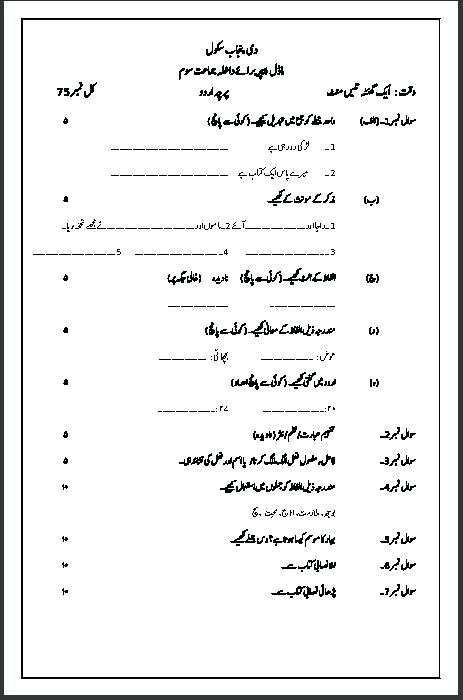 دی پنجاب سکول
ماڈل پیپر برائے داخلہ جماعت سوم
وقت: ایک گھنٹہ تیس منٹ پرچہ اردو کل نمبر 75
سوال نمبر 1۔ (الف) واحد جملے کو جمع میں تبدیل کیجیے۔ (کوئی سے پانچ) ۵
1۔ لڑکی دوڑ رہی ہے ____________________
2۔ میرے پاس ایک کتاب ہے ____________________
(ب) مذکر کے مونث لکھیے۔ ۵
1۔ دادا اور ____________ آئے 2۔ ماموں اور ____________ نے مجھے تحفہ دیا۔
3 ____________ 4 ____________ 5 ____________
(ج) الفاظ کے الٹ لکھیے۔ (کوئی سے پانچ) نادیدہ (خالی جگہ پر) ۵
____________ ____________
(د) مندرجہ ذیل الفاظ کے معانی لکھیے۔ (کوئی سے پانچ) ۵
عوض: __________ __________
(ہ) اردو میں گنتی لکھیے۔ (کوئی سے پانچ اعداد) ۵
____________ ۲۷: ____________
سوال نمبر 2۔ تفہیم عبارت/نظم/نثر (نادیدہ) ۵
سوال نمبر 3۔ فاعل، مفعول، فعل الگ الگ کرنا یا اسم اور فعل کی نشاندہی۔ ۵
سوال نمبر 4۔ مندرجہ ذیل الفاظ کو جملوں میں استعمال کیجیے۔ ۱۰
بوجھ، محبت، سچ
سوال نمبر 5۔ بہار کا موسم کیسا ہوتا ہے؟ دس جملے لکھیے۔ ۱۰
سوال نمبر 6۔ املا نصابی کتاب سے۔ ۱۰
سوال نمبر 7۔ پڑھائی نصابی کتاب سے۔ ۱۰